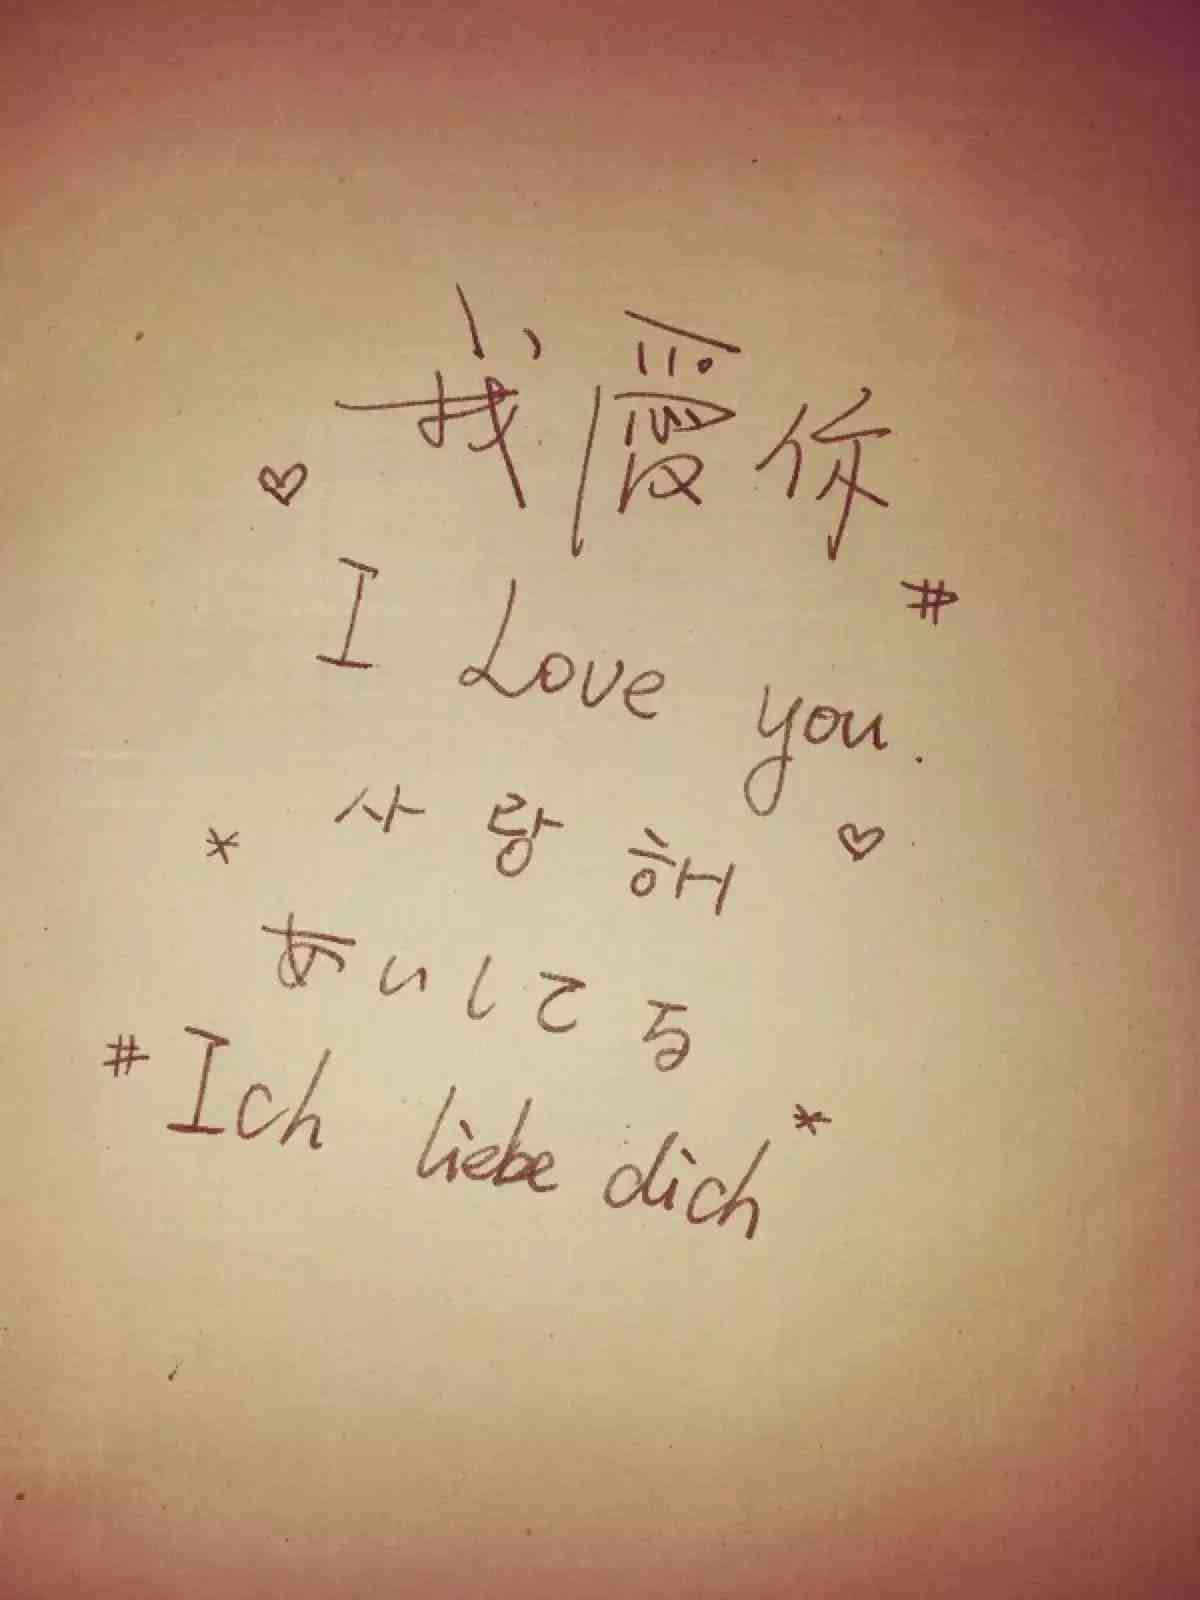 我愛你
I Love you.
사랑해
あいしてる
Ich liebe dich